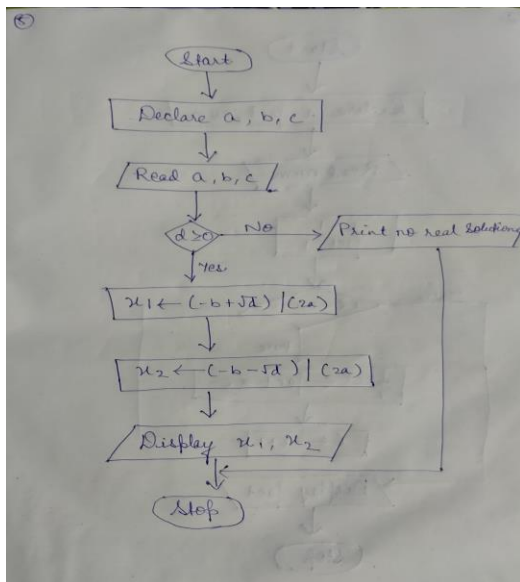 Start
Declare a, b, c
Read a, b, c
d≥0
No
Print no real Solutions
Yes
x1 ← (-b+√d) | (2a)
x2 ← (-b-√d) | (2a)
Display x1, x2
Stop